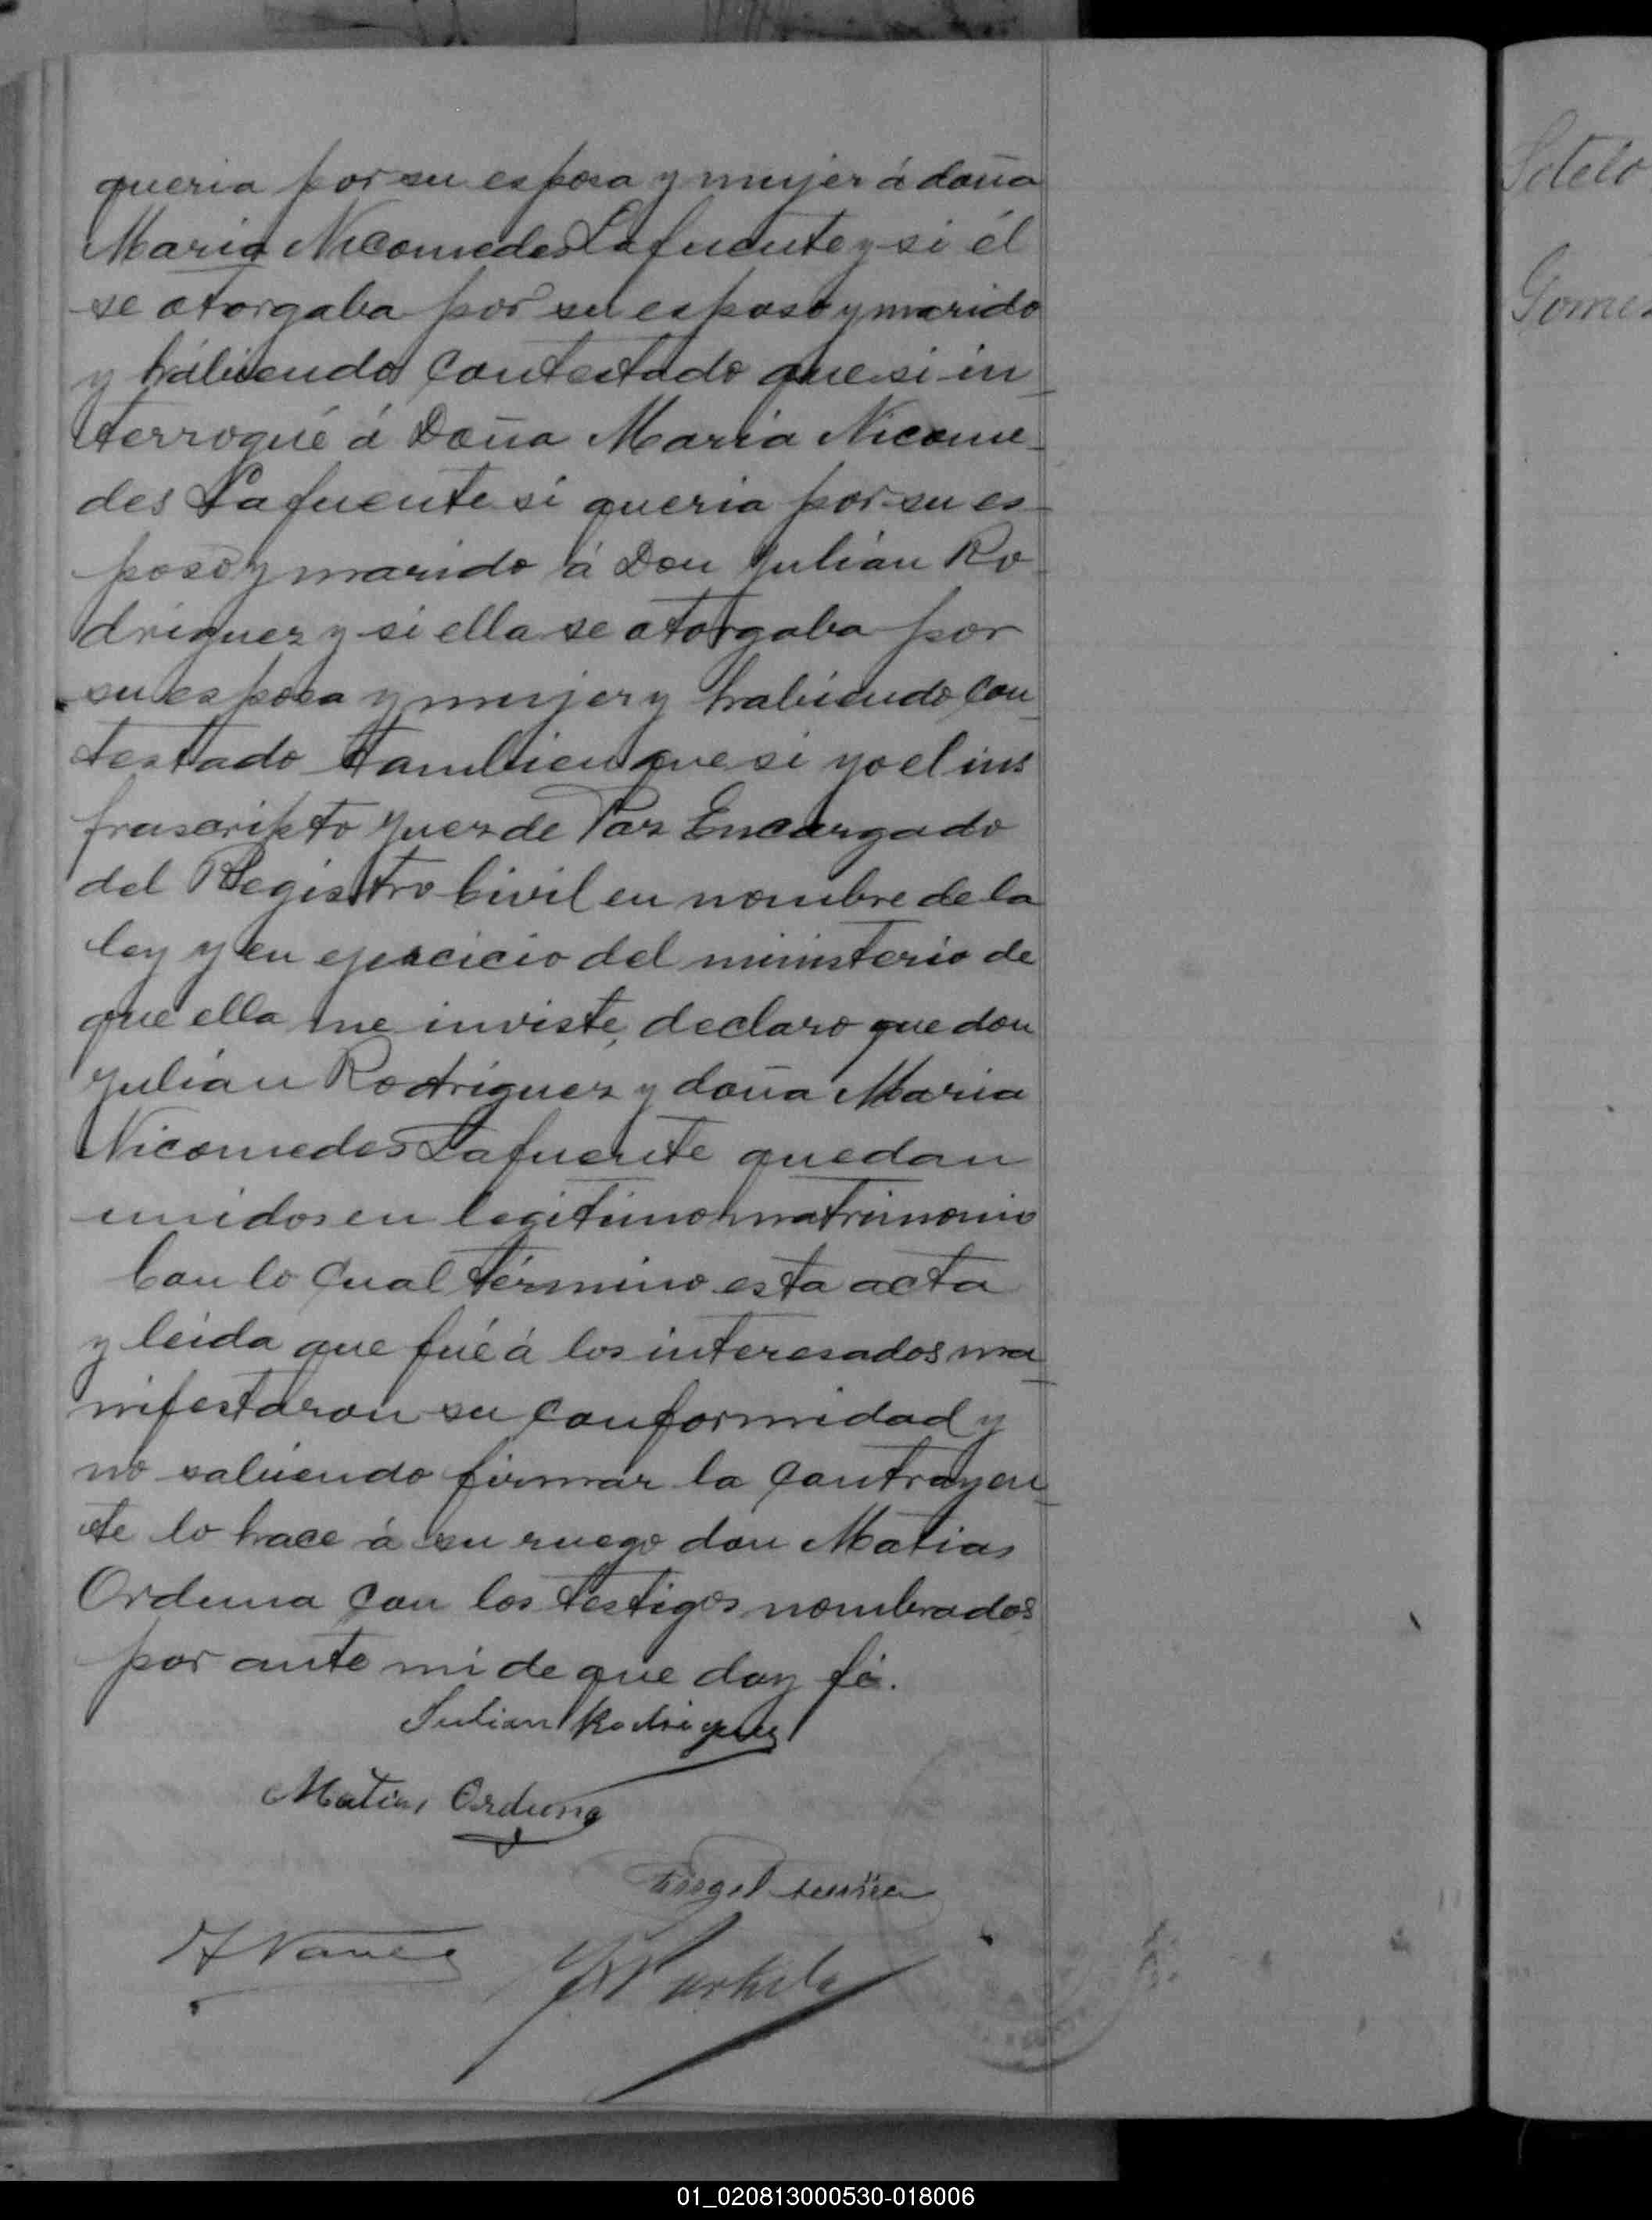 queria por su esposa y mujer á doña
Maria Nicomedes Lafuente y si él
se otorgaba por su esposo y marido
y habiendo contestado que si in_
terrogué á Doña Maria Nicome_
des Lafuente si queria por su es_
poso y marido á Don Julián Ro_
driguez y si ella se otorgaba por
su esposa y mujer y habiendo con_
testado tambien que si yo el ins
frascripto Juez de Paz Encargado
del Registro Civil en nombre de la
ley y en ejercicio del ministerio de
que ella me inviste, declaro que don
Julián Rodriguez y doña Maria
Nicomedes Lafuente quedan
unidos en legitimo matrimonio
Con lo cual término esta acta
y leida que fué á los interesados ma_
nifestaron su conformidad y
no sabiendo firmar la contrayen_
te lo hace á su ruego don Matias
Orduna con los testigos nombrados
por ante mi de que doy fé.
Julian Rodriguez
Matias Orduna
Sotelo
Gomez
01_020813000530-018006